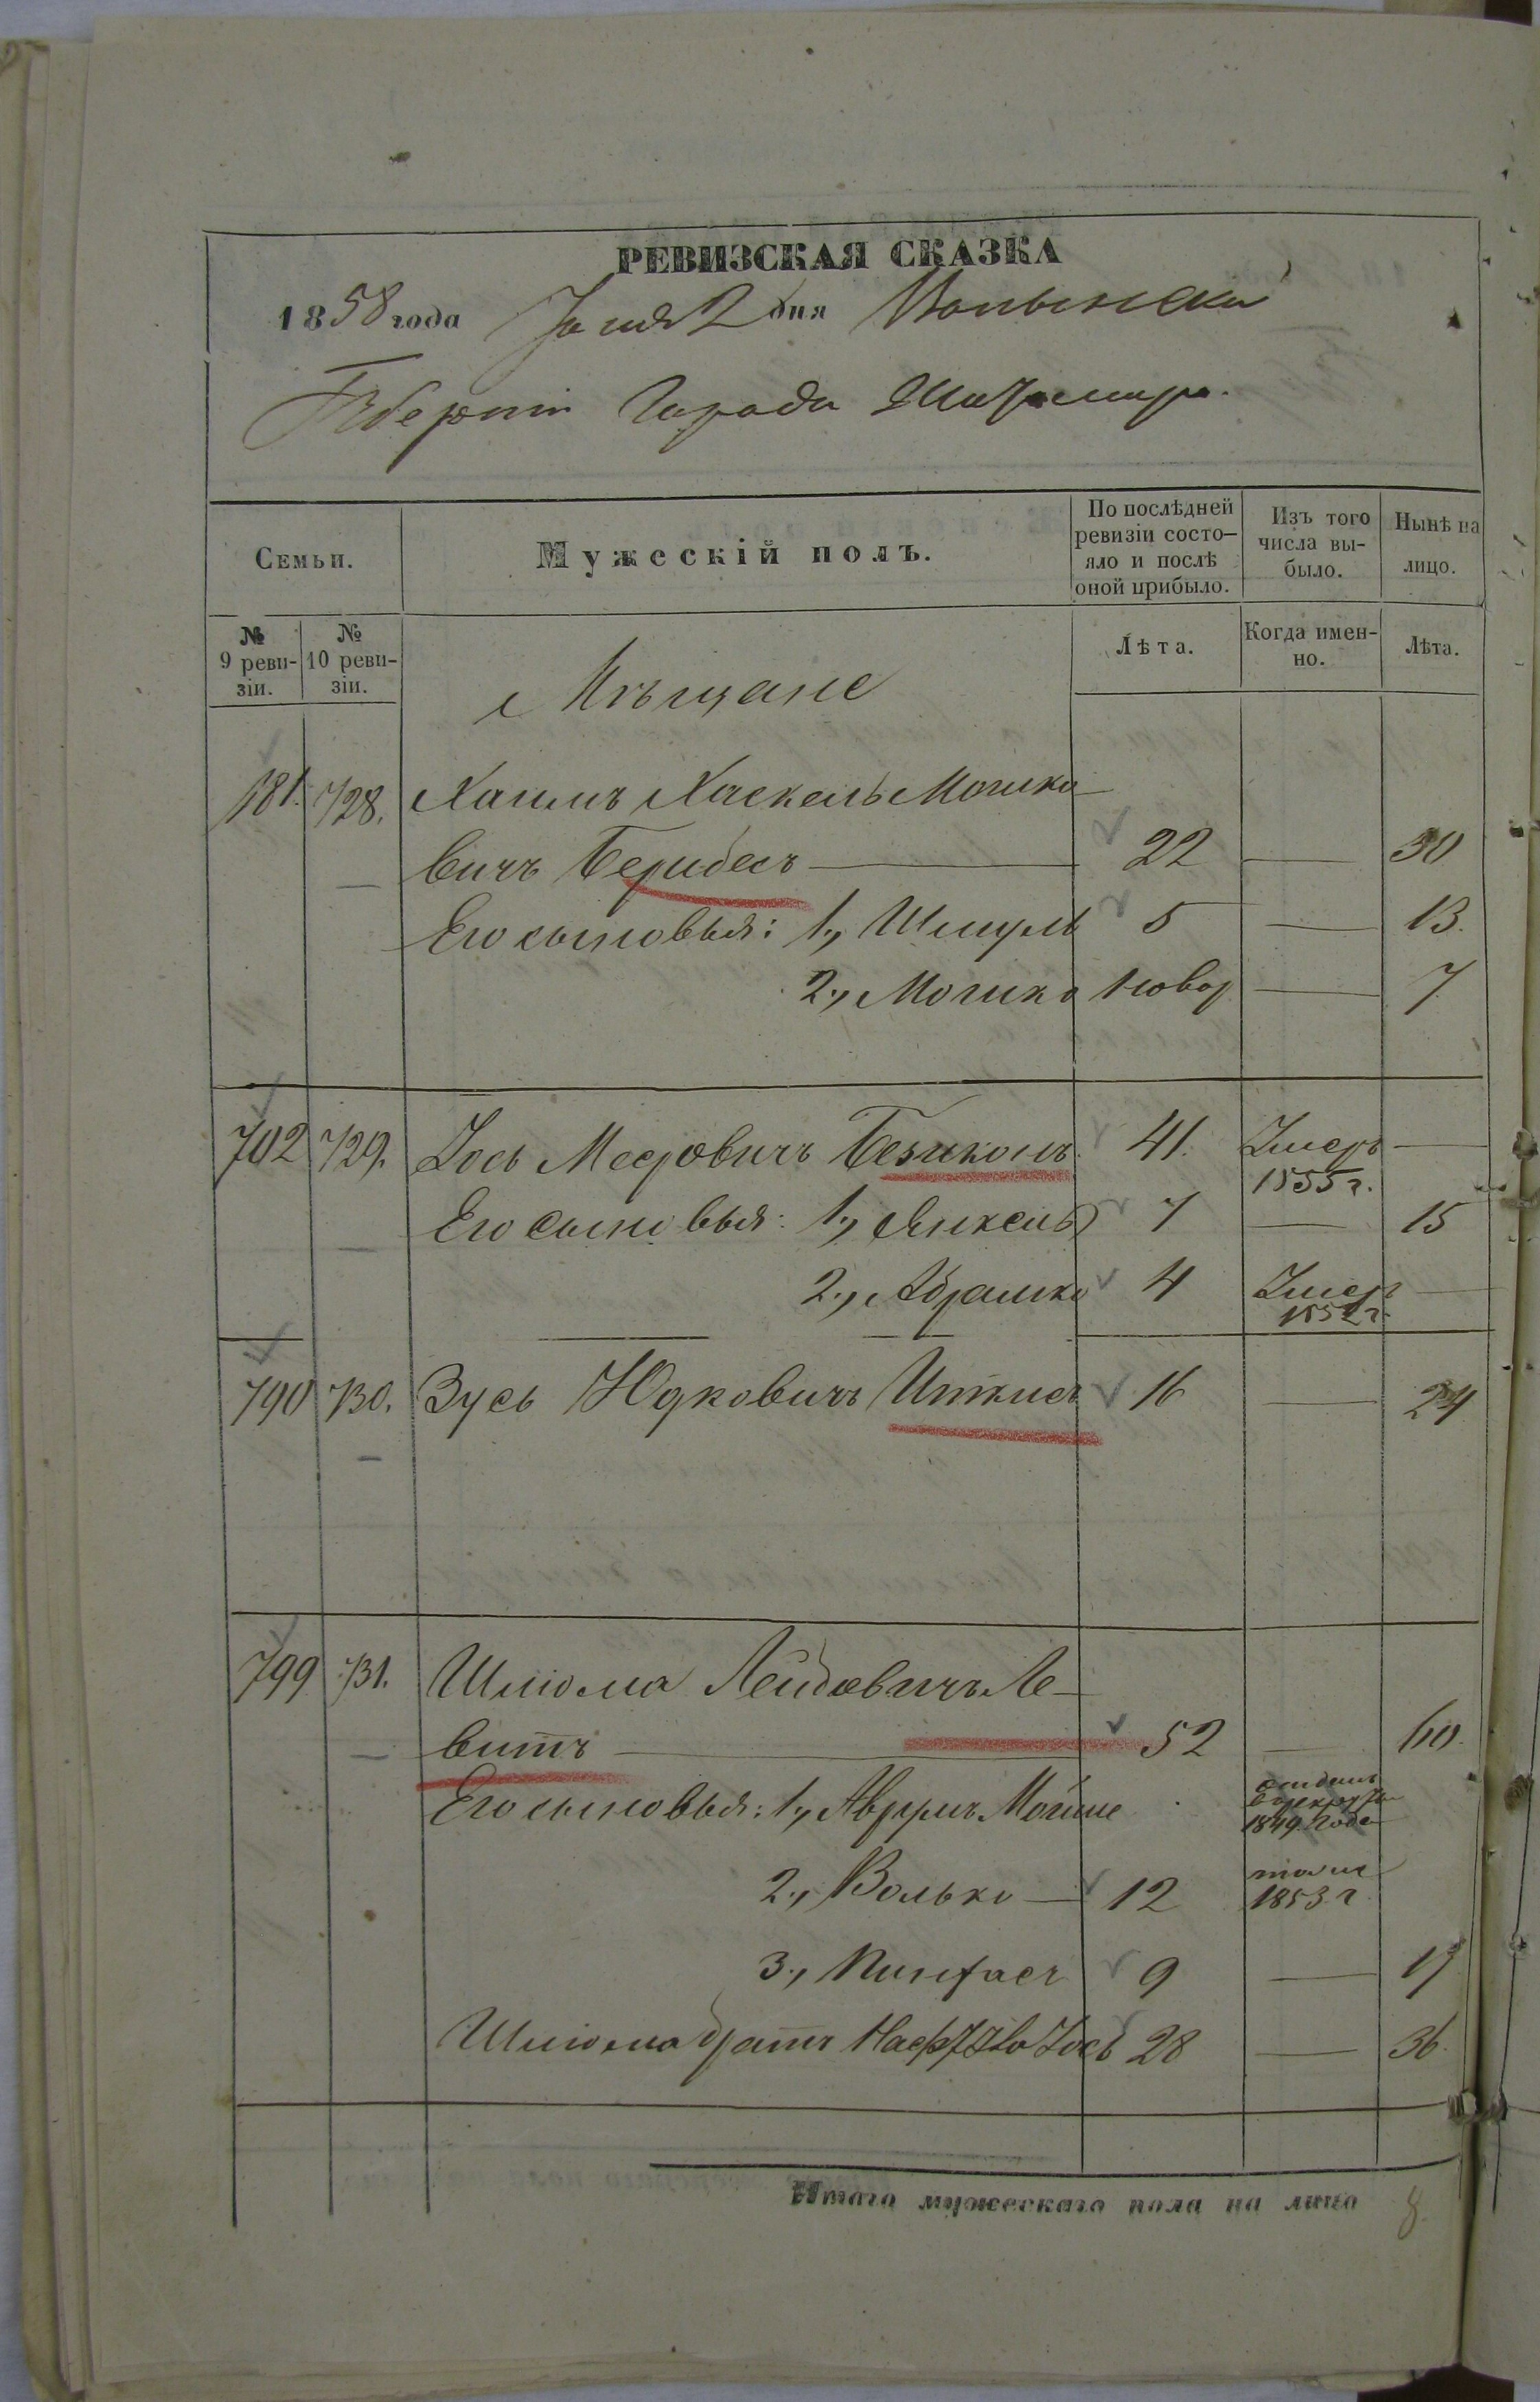 РЕВИЗСКАЯ СКАЗКА
1858 года Іюня 2 дня Волынской
Губерніи Города Житомира.
Семьи.
Мужескій полъ.
По послѣдней ревизіи состо-яло и послѣ оной прибыло.
Изъ того числа вы-было.
Нынѣ на лицо.
№ 9 реви-зіи.
№ 10 реви-зіи.
Лѣта.
Когда имен-но.
Лѣта.
Мѣщане
728. Хаимъ Хаскель Мошко-
вичъ 22 — 30
Его сыновья: 1., Шмуль 5 — 13.
2., Мошко 1 новор — 7
702 729. Іось Мееровичъ 41. Умеръ 1855 г. —
Его сыновья: 1., Янкель 7 — 15
2., Абрамко 4 Умер 1852 г. —
790 730. Зусь Юдковичъ Иткисъ 16 — 24
799 731. Шліома Лейбовичъ Ле-
витъ 52 — 60.
Его сыновья: 1., Аврумъ Мойше отданъ в рекруты 1849 года
2., Волько — 12 тоже 1853 г
3., Пинхасъ 9 — 17
Шліома братъ Іось 28 — 36.
Итого мужескаго пола на лицо 8.